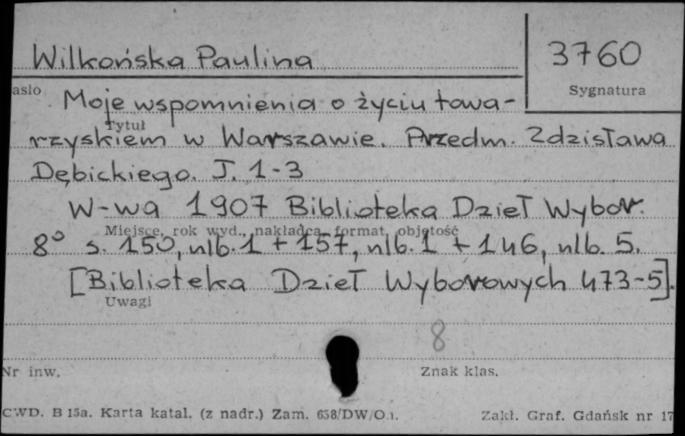 Wilkońska Paulina
3760
asło
Sygnatura
Moje wspomnienia o życiu towa-
Tytuł
rzyskiem w Warszawie. Przedm. Zdzisława
Dębickiego. T. 1-3
W-wa 1907 Biblioteka Dzieł Wybor.
Miejsce, rok wyd., nakładca, format, objętość
8° s. 150, nlb. 1 + 157, nlb. 1 + 146, nlb. 5.
[Biblioteka Dzieł Wyborowych 473-5].
Uwagi
8
Nr inw.
Znak klas.
CWD. B 15a. Karta katal. (z nadr.) Zam. 658/DW/O.1.
Zakł. Graf. Gdańsk nr 17